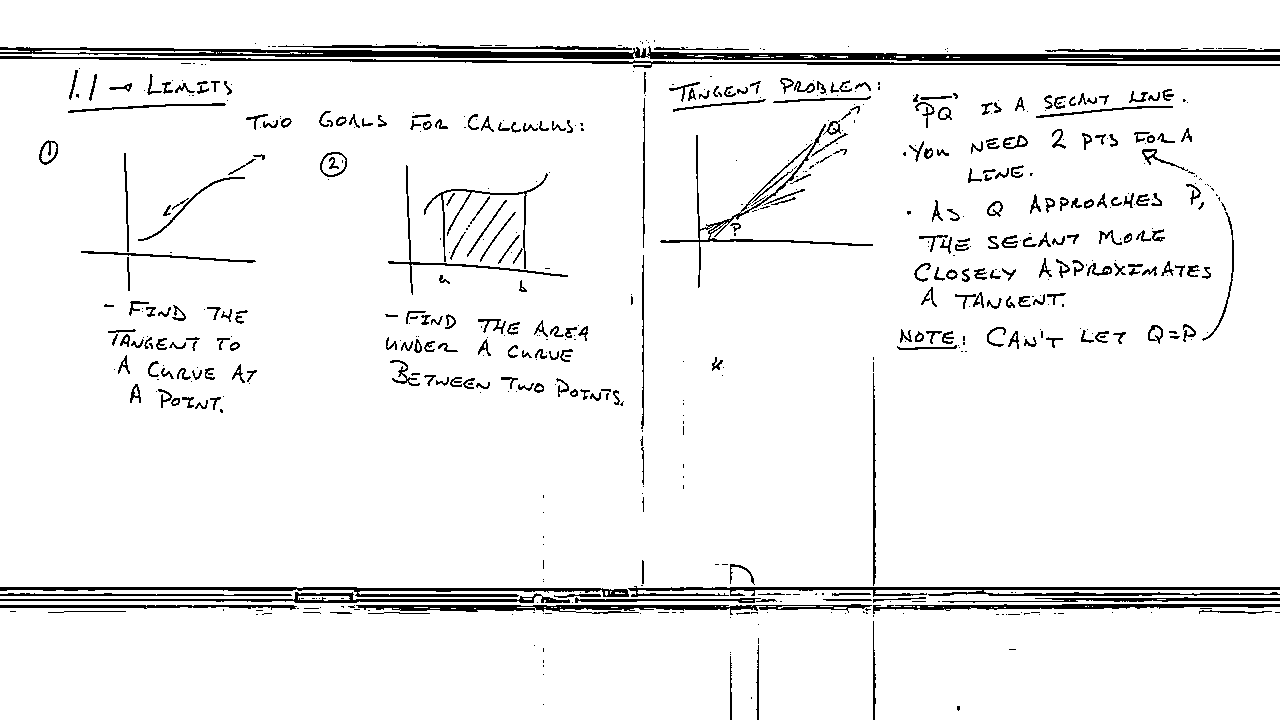 1.1 → LIMITS
TWO GOALS FOR CALCULUS:
①
②
a
b
- FIND THE
TANGENT TO
A CURVE AT
A POINT.
- FIND THE AREA
UNDER A CURVE
BETWEEN TWO POINTS.
TANGENT PROBLEM:
Q
P
PQ IS A SECANT LINE.
• YOU NEED 2 PTS FOR A
LINE.
• AS Q APPROACHES P,
THE SECANT MORE
CLOSELY APPROXIMATES
A TANGENT.
NOTE: CAN'T LET Q=P
*